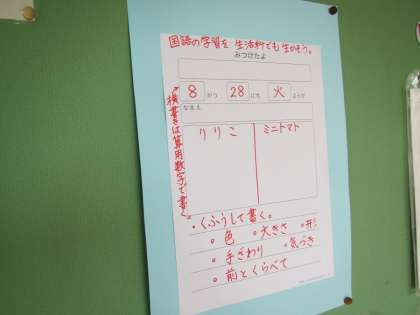 国語の学習を 生活科でも 生かそう。
みつけたよ
8 がつ 28 にち 火 ようび
なまえ
りりこ ミニトマト
横書きは算用数字で書く。
・くふうして書く。
。色 。大きさ 。形
。手ざわり 。気づき
。前とくらべて